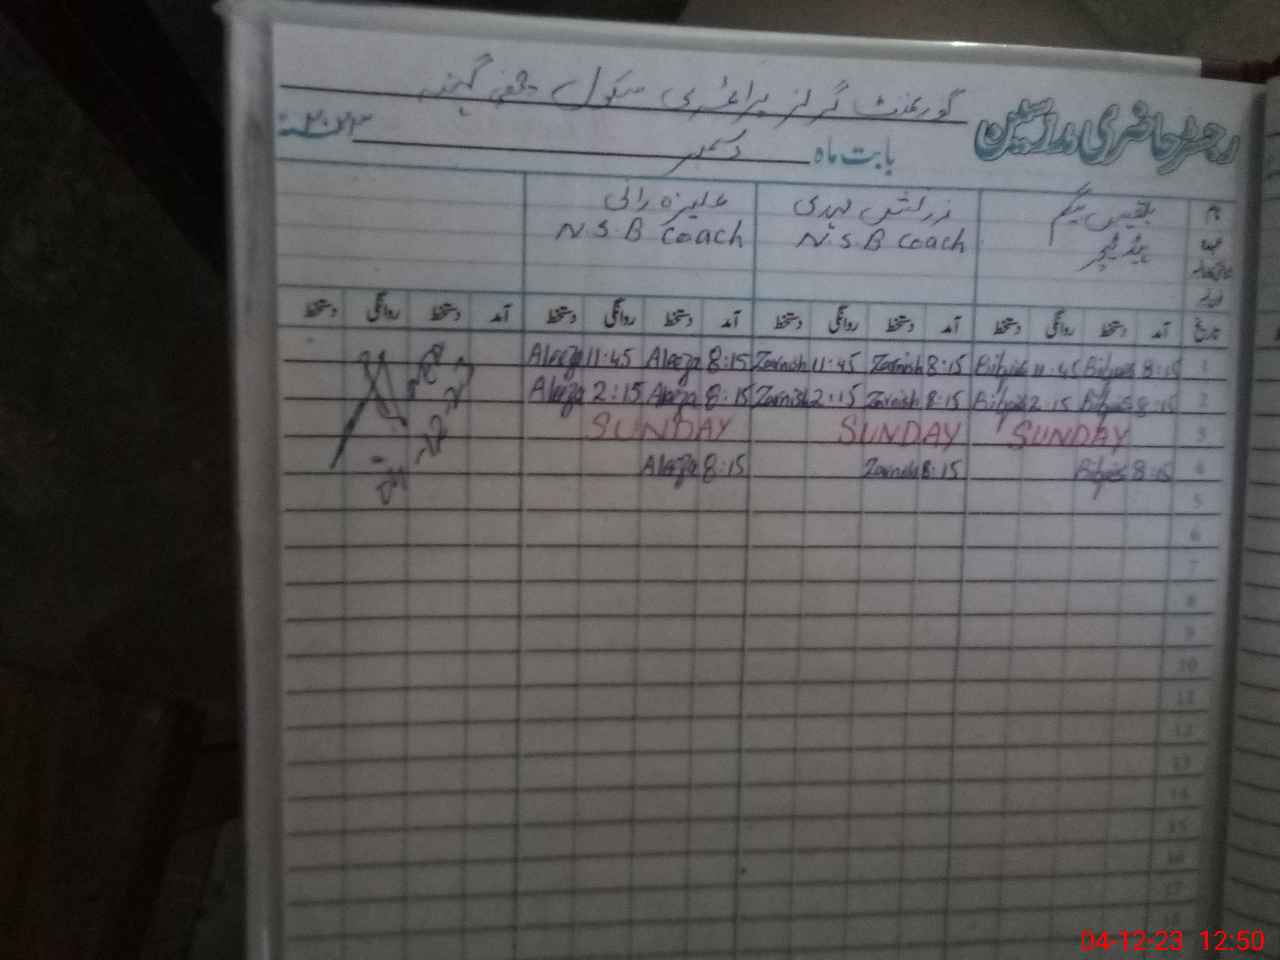 رجسٹر حاضری مدرسین گورنمنٹ گرلز پرائمری سکول
بابت ماہ دسمبر ۲۰۲۳
نام بلقیس بیگم زرنش علیزہ رانی
عہدہ ہیڈ ٹیچر N.S.B Coach N.S.B Coach
تاریخ آمد دستخط روانگی دستخط آمد دستخط روانگی دستخط آمد دستخط روانگی دستخط آمد دستخط روانگی دستخط
1 8:15 Bilqis 11:45 Bilqis 8:15 Zarnish 11:45 Zarnish 8:15 Aleeza 11:45 Aleeza
2 8:15 Bilqis 2:15 Bilqis 8:15 Zarnish 2:15 Zarnish 8:15 Aleeza 2:15 Aleeza
3 SUNDAY SUNDAY SUNDAY
4 8:15 Bilqis 8:15 Zarnish 8:15 Aleeza
5
6
7
8
9
10
11
12
13
14
15
16
17
18
04-12-23 12:50